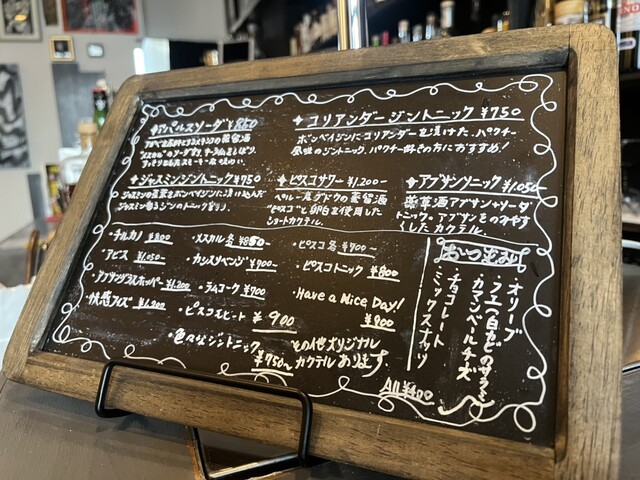 ソーダ ¥850
✦コリアンダージントニック ¥750
ボンベイジンにコリアンダーを漬けた、パクチー
風味のジントニック、パクチー好きの方におすすめ!
✦ジャスミンジントニック ¥750
ジャスミンの茶葉をボンベイジンに漬け込んだ
ジャスミン香るジンのトニック割り。
✦ピスコサワー ¥1,200-
ペルー産ブドウの蒸留酒
"ピスコ"と卵白を使用した
ショートカクテル。
✦アブサントニック ¥1,050-
薬草酒アブサン+ソーダ
トニック。アブサンをのみやす
くしたカクテル。
・チルカノ ¥800
・アビス ¥1,050-
・アブサングラスホッパー ¥1,200
・快感フィズ ¥1,200
・メスカル各 ¥850-
・カシスリベンジ ¥900
・ラムコーク ¥700
・ピスコ各 ¥700-
・ピスコトニック ¥800
・Have a Nice Day!
¥900
・ピスコスピード ¥900
・色々なジントニック
¥750~
その他オリジナル
カクテルあります
おつまみ
・オリーブ
・フエ(白かびのサラミ)
・カマンベールチーズ
・チョコレート
・ミックスナッツ
All ¥400